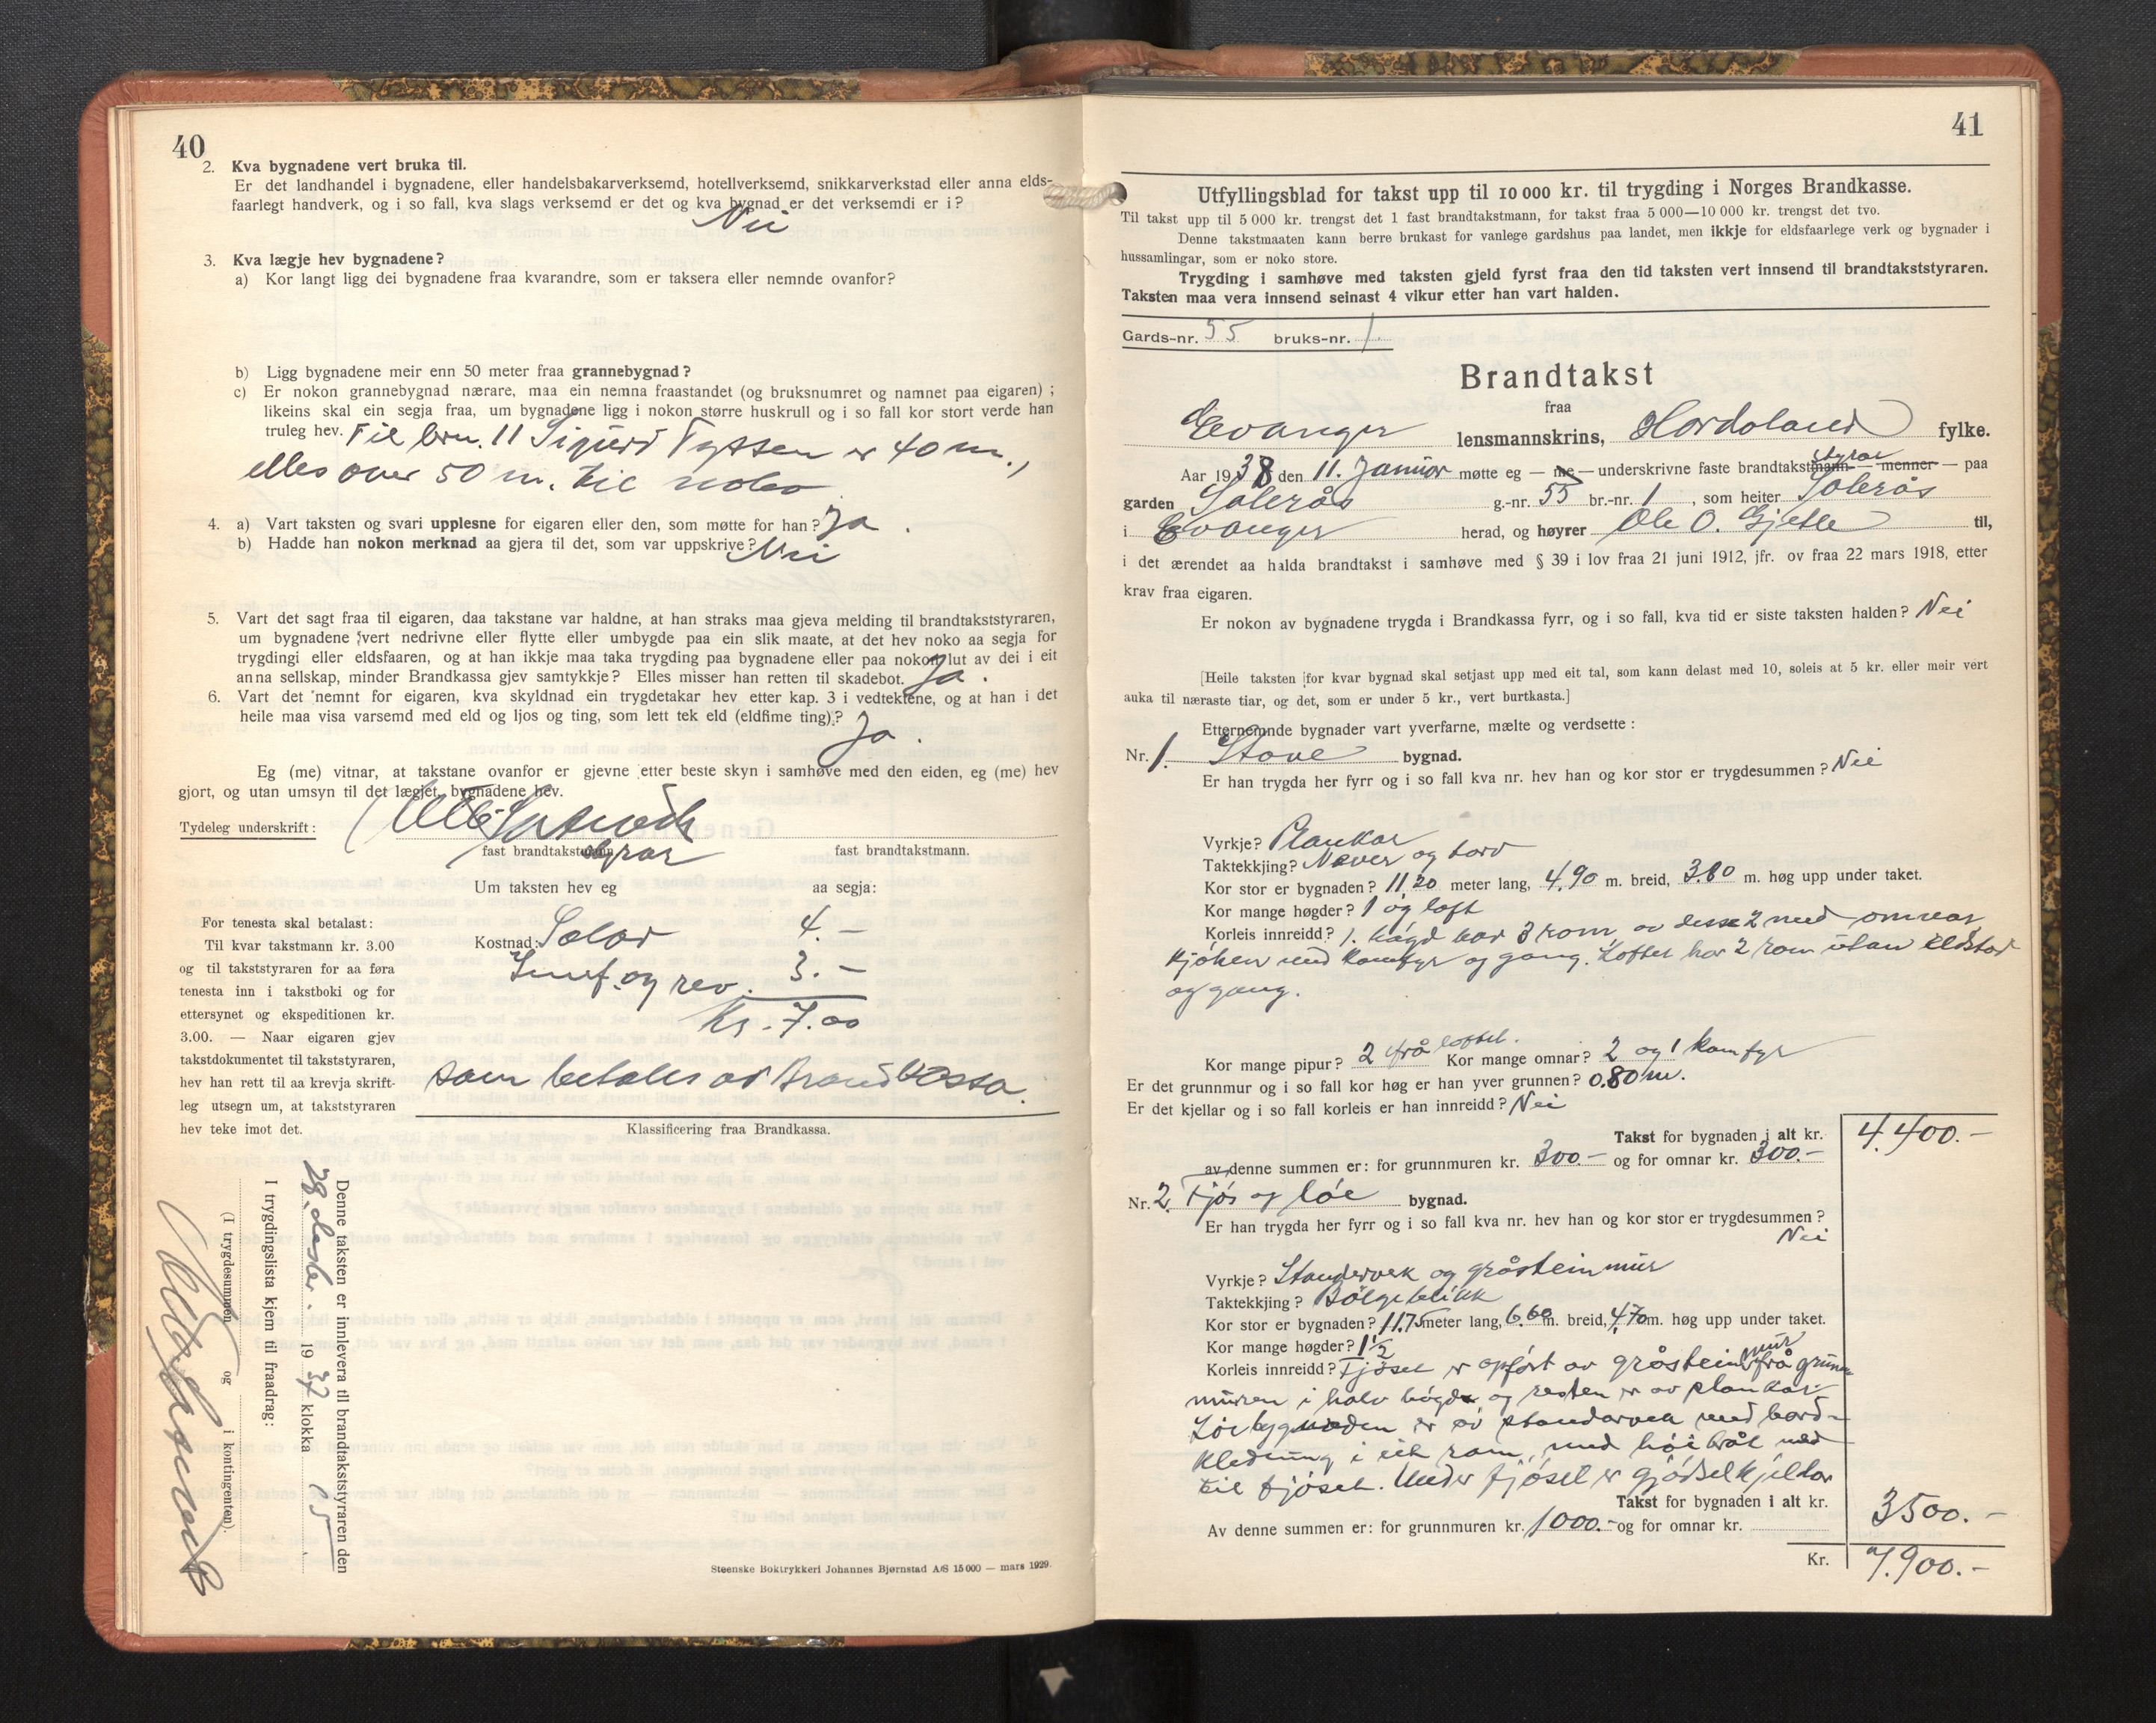 40
2. Kva bygnadene vert bruka til.
Er det landhandel i bygnadene, eller handelsbakarverksemd, hotellverksemd, snikkarverkstad eller anna elds-
faarlegt handverk, og i so fall, kva slags verksemd er det og kva bygnad er det verksemdi er i?
Nei
3. Kva lægje hev bygnadene?
a) Kor langt ligg dei bygnadene fraa kvarandre, som er taksera eller nemnde ovanfor?
b) Ligg bygnadene meir enn 50 meter fraa grannebygnad?
c) Er nokon grannebygnad nærare, maa ein nemna fraastandet (og bruksnumret og namnet paa eigaren) ;
likeins skal ein segja fraa, um bygnadene ligg i nokon større huskrull og i so fall kor stort verde han
truleg hev. Til brn. 11 Sigurd Tyssen er 40 m.,
elles over 50 m. til nabo
4. a) Vart taksten og svari upplesne for eigaren eller den, som møtte for han? Ja.
b) Hadde han nokon merknad aa gjera til det, som var uppskrive? Nei
5. Vart det sagt fraa til eigaren, daa takstane var haldne, at han straks maa gjeva melding til brandtakststyraren,
um bygnadene vert nedrivne eller flytte eller umbygde paa ein slik maate, at det hev noko aa segja for
trygdingi eller eldsfaaren, og at han ikkje maa taka trygding paa bygnadene eller paa nokon lut av dei i eit
anna sellskap, minder Brandkassa gjev samtykkje? Elles misser han retten til skadebot. Ja.
6. Vart det nemnt for eigaren, kva skyldnad ein trygdetakar hev etter kap. 3 i vedtektene, og at han i det
heile maa visa varsemd med eld og ljos og ting, som lett tek eld (eldfime ting)?
Ja.
Eg (me) vitnar, at takstane ovanfor er gjevne etter beste skyn i samhøve med den eiden, eg (me) hev
gjort, og utan umsyn til det lægjet, bygnadene hev.
Tydeleg underskrift:
fast brandtakststyrar fast brandtakstmann.
Um taksten hev eg aa segja:
For tenesta skal betalast:
Til kvar takstmann kr. 3.00
og til takststyraren for aa føra
tenesta inn i takstboki og for
ettersynet og ekspeditionen kr.
3.00. — Naar eigaren gjev
takstdokumentet til takststyraren,
hev han rett til aa krevja skrift-
leg utsegn um, at takststyraren
hev teke imot det.
Kostnad: Salar 4.—
Innf. og rev. 3.—
Kr. 7.00
som betales av Brandkassa.
Klassificering fraa Brandkassa.
Denne taksten er innlevera til brandtakststyraren den
28. desbr. 1937 klokka 15
I trygdingslista kjem til fraadrag:
(I trygdesummen og i kontingenten).
Steenske Boktrykkeri Johannes Bjørnstad A/S 15000 — mars 1929.
41
Utfyllingsblad for takst upp til 10 000 kr. til trygding i Norges Brandkasse.
Til takst upp til 5 000 kr. trengst det 1 fast brandtakstmann, for takst fraa 5 000—10 000 kr. trengst det tvo.
Denne takstmaaten kann berre brukast for vanlege gardshus paa landet, men ikkje for eldsfaarlege verk og bygnader i
hussamlingar, som er noko store.
Trygding i samhøve med taksten gjeld fyrst fraa den tid taksten vert innsend til brandtakststyraren.
Taksten maa vera innsend seinast 4 vikur etter han vart halden.
Gards-nr. 55 bruks-nr. 1.
Brandtakst
fraa
Evanger lensmannskrins, Hordaland fylke.
Aar 1938 den 11. Januar møtte eg — me — underskrivne faste brandtakstmann styrar — menner — paa
garden Solerås g.-nr. 55 br.-nr. 1, som heiter Solerås
i Evanger herad, og høyrer Ole O. Gjelle til,
i det ærendet aa halda brandtakst i samhøve med § 39 i lov fraa 21 juni 1912, jfr. ov fraa 22 mars 1918, etter
krav fraa eigaren.
Er nokon av bygnadene trygda i Brandkassa fyrr, og i so fall, kva tid er siste taksten halden? Nei
[Heile taksten for kvar bygnad skal setjast upp med eit tal, som kann delast med 10, soleis at 5 kr. eller meir vert
auka til næraste tiar, og det, som er under 5 kr., vert burtkasta.]
Etternemnde bygnader vart yverfarne, mælte og verdsette :
Nr. 1. Stove bygnad.
Er han trygda her fyrr og i so fall kva nr. hev han og kor stor er trygdesummen? Nei
Vyrkje? Plankar
Taktekkjing? Never og torv
Kor stor er bygnaden? 11,20 meter lang, 4.90 m. breid, 3.80 m. høg upp under taket.
Kor mange høgder? 1 og loft
Korleis innreidd? 1. høgd har 3 rom, av desse 2 med omnar,
kjøken med komfyr og gang. Loftet har 2 rom utan eldstad
og gang.
Kor mange pipur? 2 frå loftet. Kor mange omnar? 2 og 1 komfyr
Er det grunnmur og i so fall kor høg er han yver grunnen? 0.80 m.
Er det kjellar og i so fall korleis er han innreidd? Nei
Takst for bygnaden i alt kr. 4.400.—
av denne summen er: for grunnmuren kr. 300.— og for omnar kr. 300.—
Nr. 2 Fjøs og løe bygnad.
Er han trygda her fyrr og i so fall kva nr. hev han og kor stor er trygdesummen?
Nei
Vyrkje? Standerverk og gråsteinmur
Taktekkjing? Bølgeblikk
Kor stor er bygnaden? 11.75 meter lang, 6.60 m. breid, 4,70 m. høg upp under taket.
Kor mange høgder? 1½
Korleis innreidd? Fjøset er opført av gråstein mur frå grunn-
muren i halv høgde og resten er av plankar.
Løebygnaden er av standerverk med bord-
kledning i eit rom, med høibråt ned
til fjøset. Under fjøset er gjødselkjellar
Takst for bygnaden i alt kr. 3500.—
Av denne summen er: for grunnmuren kr. 1000.— og for omnar kr.
Kr. 7.900.—